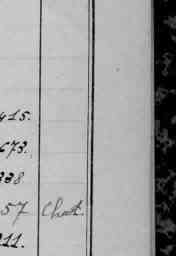 415.
673.
338
57 Chat.
211.